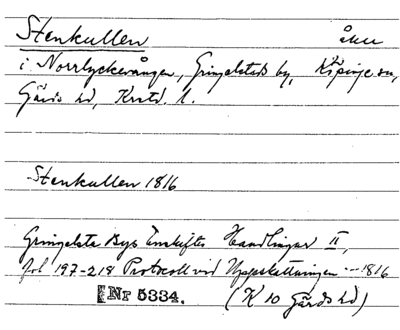 Stenkullen åker
i Norrlyckevången, Gringelstads by, Köpinge sn,
Gärds hd, Krstd. l.
Stenkullen 1816
Gringelsta Bys Enskiftes Handlingar II,
fol 197-218 Protocoll vid Uppskattningen -- 1816
Nr 5334. (K 10 Gärds hd)